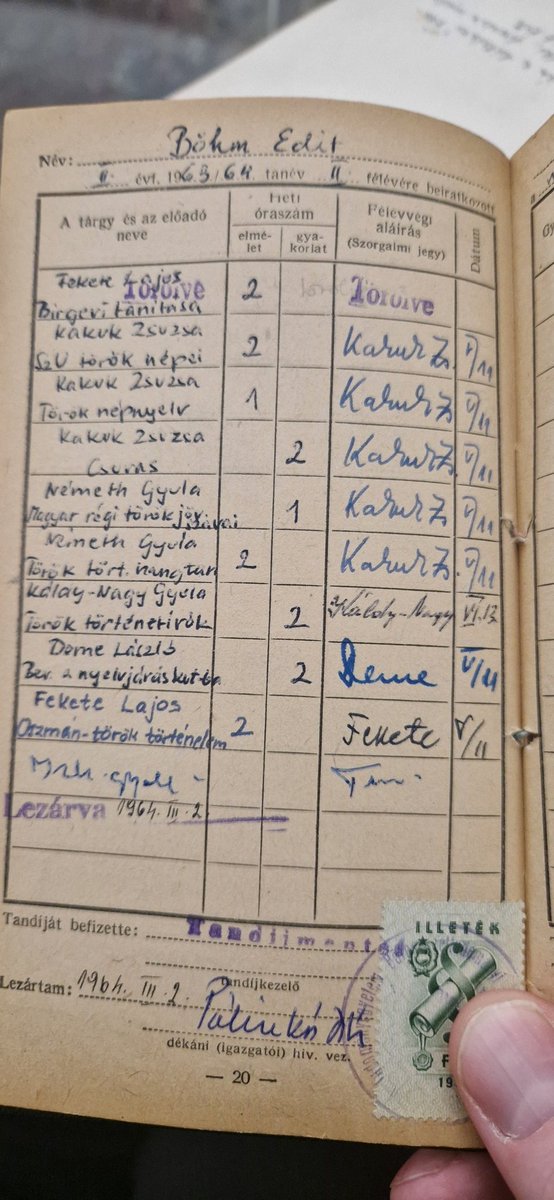 Név: Böhm Edit
II. évf. 1963/64. tanév II. félévére beiratkozott
A tárgy és az előadó neve
Heti óraszám
elmélet
gyakorlat
Félévvégi aláírás (Szorgalmi jegy)
Dátum
Fekete Lajos
Törölve 2 Törölve
tanítása
Kakuk Zsuzsa
SZU török népei 2 Kakuk Zs. V/11
Kakuk Zsuzsa
Török népnyelv 1 Kakuk Zs. V/11
Kakuk Zsuzsa
Csuvas 2 Kakuk Zs. V/11
Németh Gyula
Magyar régi török jöv. szavai 1 Kakuk Zs. V/11
Németh Gyula
Török tört. hangtan 2 Kakuk Zs. V/11
Káldy-Nagy Gyula
Török történetírók 2 Káldy-Nagy VI.12
Deme László
Bev. a nyelvjáráskutba 2 Deme V/11
Fekete Lajos
Oszmán-török történelem 2 Fekete V/11
Lezárva 1964. III. 2.
Tandíját befizette: Tandíjmentes
tandíjkezelő
Lezártam: 1964. III. 2.
dékáni (igazgatói) hiv. vez.
— 20 —
ILLETÉK